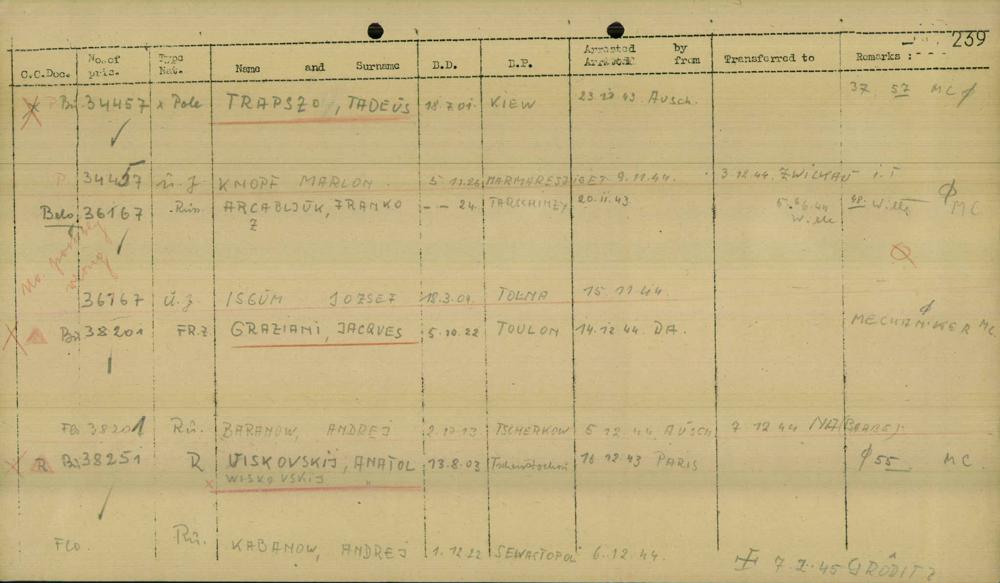 239
C.C.Doc. No.of pris. Type Nat. Name and Surname B.D. B.P. Arrested Arrived by from Transferred to Remarks :
P Bü 34457 x Pole TRAPSZO, TADEÜS 18.7.01. KIEW 23.12.43. Ausch. 37. 57 MC
P. 34457 ü. J KNOPF MARLON 5.11.26 MARMARESZIGET 9.11.44. 3.12.44. ZWICKAU i.T
Belo 36167 Rus. ARCABLJUK, FRANKO - - 24. 20.11.43. Wille 48. Wille MC
Z
No. possibly wrong
36167 Ü.J ISGÜM JOZSEF 18.3.01. TOLNA 15.11.44.
Bü 38201 FR.Z GRAZIANI, JACQUES 5.10.22 TOULON 14.12.44 DA. MECHANIKER MC
Flo 38201 Rü. BARANOW, ANDREJ 2.12.13 TSCHERKOW 5.12.44 AUSCH 7.12.44
R Bü 38251 R VISKOVSKIJ, ANATOL 13.8.03 16.12.43 PARIS 55 MC.
x WISKOVSKIJ "
Flo. Rü. KABANOW, ANDREJ 1.12.22 SEWASTOPOL 6.12.44.
7.2.45 GRÖDITZ